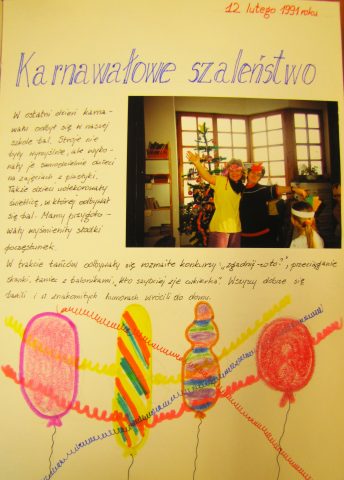 12 lutego 1991 roku
Karnawałowe szaleństwo
W ostatni dzień karna-
wału odbył się w naszej
szkole bal. Stroje nie
były wymyślne, ale wyko-
nały je samodzielnie dzieci
na zajęciach z plastyki.
Także dzieci udekorowały
świetlicę, w której odbywał
się bal. Mamy przygoto-
wały wyśmienity słodki
poczęstunek.
W trakcie tańców odbywały się rozmaite konkursy: "zgadnij-kto?", przeciąganie
skarki, taniec z balonikami, "kto szybciej zje cukierka". Wszyscy dobrze się
bawili i w znakomitych humorach wrócili do domu.